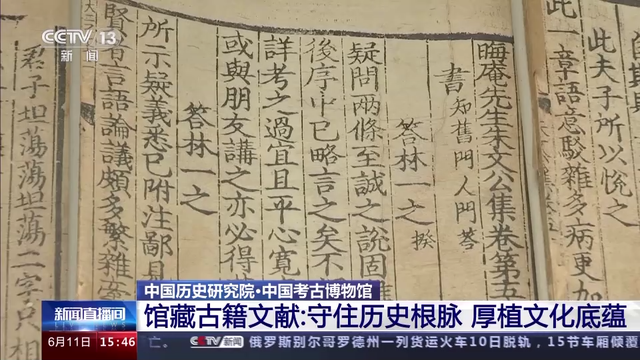 CCTV 13
新闻
此夫子所以恱之
一章語意駁雜多病更加
晦庵先生朱文公集卷第五
書 知舊門人問答
答林一之 揆
疑問兩條至誠之說固
後序中已略言之矣不
詳考之過宜且平心寬
或與朋友講之亦必得
答林一之
所示疑義悉已附注鄙見
賢者言語論議頗多繁雜
君子坦蕩蕩坦蕩二字只
中国历史研究院·中国考古博物馆
新闻直播间
馆藏古籍文献:守住历史根脉 厚植文化底蕴
6月11日 15:46
CCTV 新闻 俄罗斯别尔哥罗德州一列货运火车10日脱轨，15节车厢倾覆